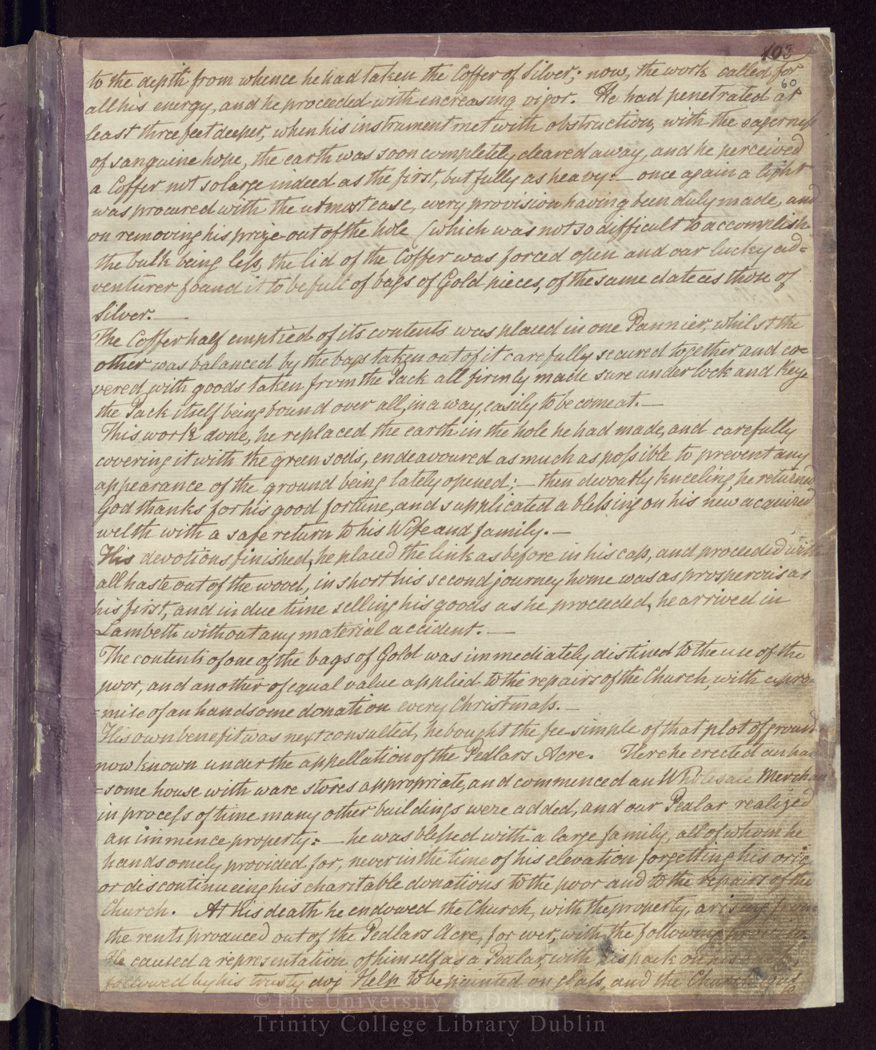 103
60
to the depth from whence he had taken the Coffer of Silver; now, the work called for
all his energy, and he proceeded with increasing vigor. He had penetrated at
least three feet deeper, when his instrument met with obstruction, with the eagerness
of sanguine hope, the earth was soon completely cleared away, and he perceived
a Coffer not so large indeed as the first, but fully as heavy: — once again a light
was procured with the utmost ease, every provision having been duly made, and
on removing his prize out of the hole (which was not so difficult to accomplish
the bulk being less, the lid of the Coffer was forced open and our lucky ad=
venturer found it to be full of bags of Gold pieces, of the same date as those of
Silver. —
The Coffer half emptied of its contents was placed in one Pannier, whilst the
other was balanced by the bags taken out of it carefully secured together and co=
vered with goods taken from the Pack all firmly made sure under lock and key
the Pack itself being bound over all, in a way, easily to be come at. —
This work done, he replaced the earth in the hole he had made, and carefully
covering it with the green sods, endeavoured as much as possible to prevent any
appearance of the ground being lately opened; — then devoutly kneeling he returned
God thanks for his good fortune, and supplicated a blessing on his new acquired
welth with a safe return to his Wife and family. —
His devotions finished, he placed the link as before in his cap, and proceeded with
all haste out of the wood, in short his second journey home was as prosperous as
his first, and in due time selling his goods as he proceeded, he arrived in
Lambeth without any material accident. —
The contents of one of the bags of Gold was immediately distined to the use of the
poor, and another of equal value applied to the repairs of the Church, with a pro=
=mise of an handsome donation every Christmass. —
His own benefit was next consulted, he bought the fee-simple of that plot of ground
now known under the appellation of the Pedlars Acre. Here he erected an hand
=some house with ware stores appropriate, and commenced an Wholesale Merchant
in process of time many other buildings were added, and our Pedlar realized
an immence property: — he was blessed with a large family, all of whom he
handsomely provided for, never in the time of his elevation forgetting his
or discontinueing his charitable donations to the poor and to the repairs of the
Church. At his death he endowed the Church, with the property, arising from
the rents produced out of the Pedlars Acre, for ever, with the following
He caused a representation of himself as a Pedlar with his pack on his
followed by his trusty dog Help to be painted on glass, and the Church
© The University of Dublin
Trinity College Library Dublin